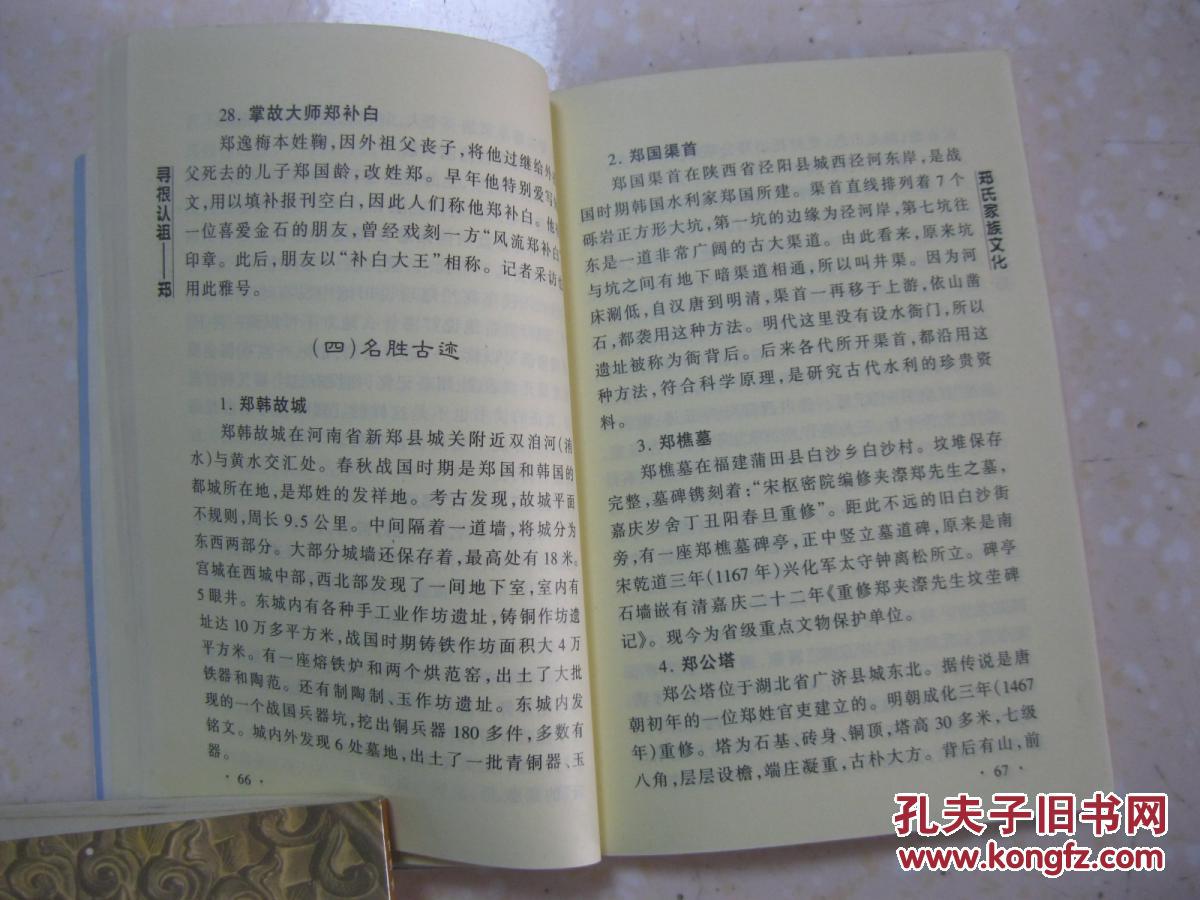 寻根认祖——郑
28. 掌故大师郑补白
郑逸梅本姓鞠,因外祖父丧子,将他过继给外
父死去的儿子郑国龄,改姓郑。早年他特别爱写
文,用以填补报刊空白,因此人们称他郑补白。他
一位喜爱金石的朋友,曾经戏刻一方“风流郑补白
印章。此后,朋友以“补白大王”相称。记者采访
用此雅号。
(四)名胜古迹
1. 郑韩故城
郑韩故城在河南省新郑县城关附近双洎河(洧
水)与黄水交汇处。春秋战国时期是郑国和韩国的
都城所在地,是郑姓的发祥地。考古发现,故城平面
不规则,周长9.5公里。中间隔着一道墙,将城分为
东西两部分。大部分城墙还保存着,最高处有18米。
宫城在西城中部,西北部发现了一间地下室,室内有
5眼井。东城内有各种手工业作坊遗址,铸铜作坊遗
址达10万多平方米,战国时期铸铁作坊面积大4万
平方米。有一座熔铁炉和两个烘范窑,出土了大批
铁器和陶范。还有制陶制、玉作坊遗址。东城内发
现的一个战国兵器坑,挖出铜兵器180多件,多数有
铭文。城内外发现6处墓地,出土了一批青铜器、玉
器。
·66·
郑氏家族文化
2. 郑国渠首
郑国渠首在陕西省泾阳县城西泾河东岸,是战
国时期韩国水利家郑国所建。渠首直线排列着7个
砾岩正方形大坑,第一坑的边缘为泾河岸,第七坑往
东是一道非常广阔的古大渠道。由此看来,原来坑
与坑之间有地下暗渠道相通,所以叫井渠。因为河
床涮低,自汉唐到明清,渠首一再移于上游,依山凿
石,都袭用这种方法。明代这里没有设水衙门,所以
遗址被称为衙背后。后来各代所开渠首,都沿用这
种方法,符合科学原理,是研究古代水利的珍贵资
料。
3. 郑樵墓
郑樵墓在福建莆田县白沙乡白沙村。坟堆保存
完整,墓碑镌刻着:“宋枢密院编修夹漈郑先生之墓,
嘉庆岁舍丁丑阳春旦重修”。距此不远的旧白沙街
旁,有一座郑樵墓碑亭,正中竖立墓道碑,原来是南
宋乾道三年(1167年)兴化军太守钟离松所立。碑亭
石墙嵌有清嘉庆二十二年《重修郑夹漈先生坟茔碑
记》。现今为省级重点文物保护单位。
4. 郑公塔
郑公塔位于湖北省广济县城东北。据传说是唐
朝初年的一位郑姓官吏建立的。明朝成化三年(1467
年)重修。塔为石基、砖身、铜顶,塔高30多米,七级
八角,层层设檐,端庄凝重,古朴大方。背后有山,前
·67·
孔夫子旧书网
www.kongfz.com